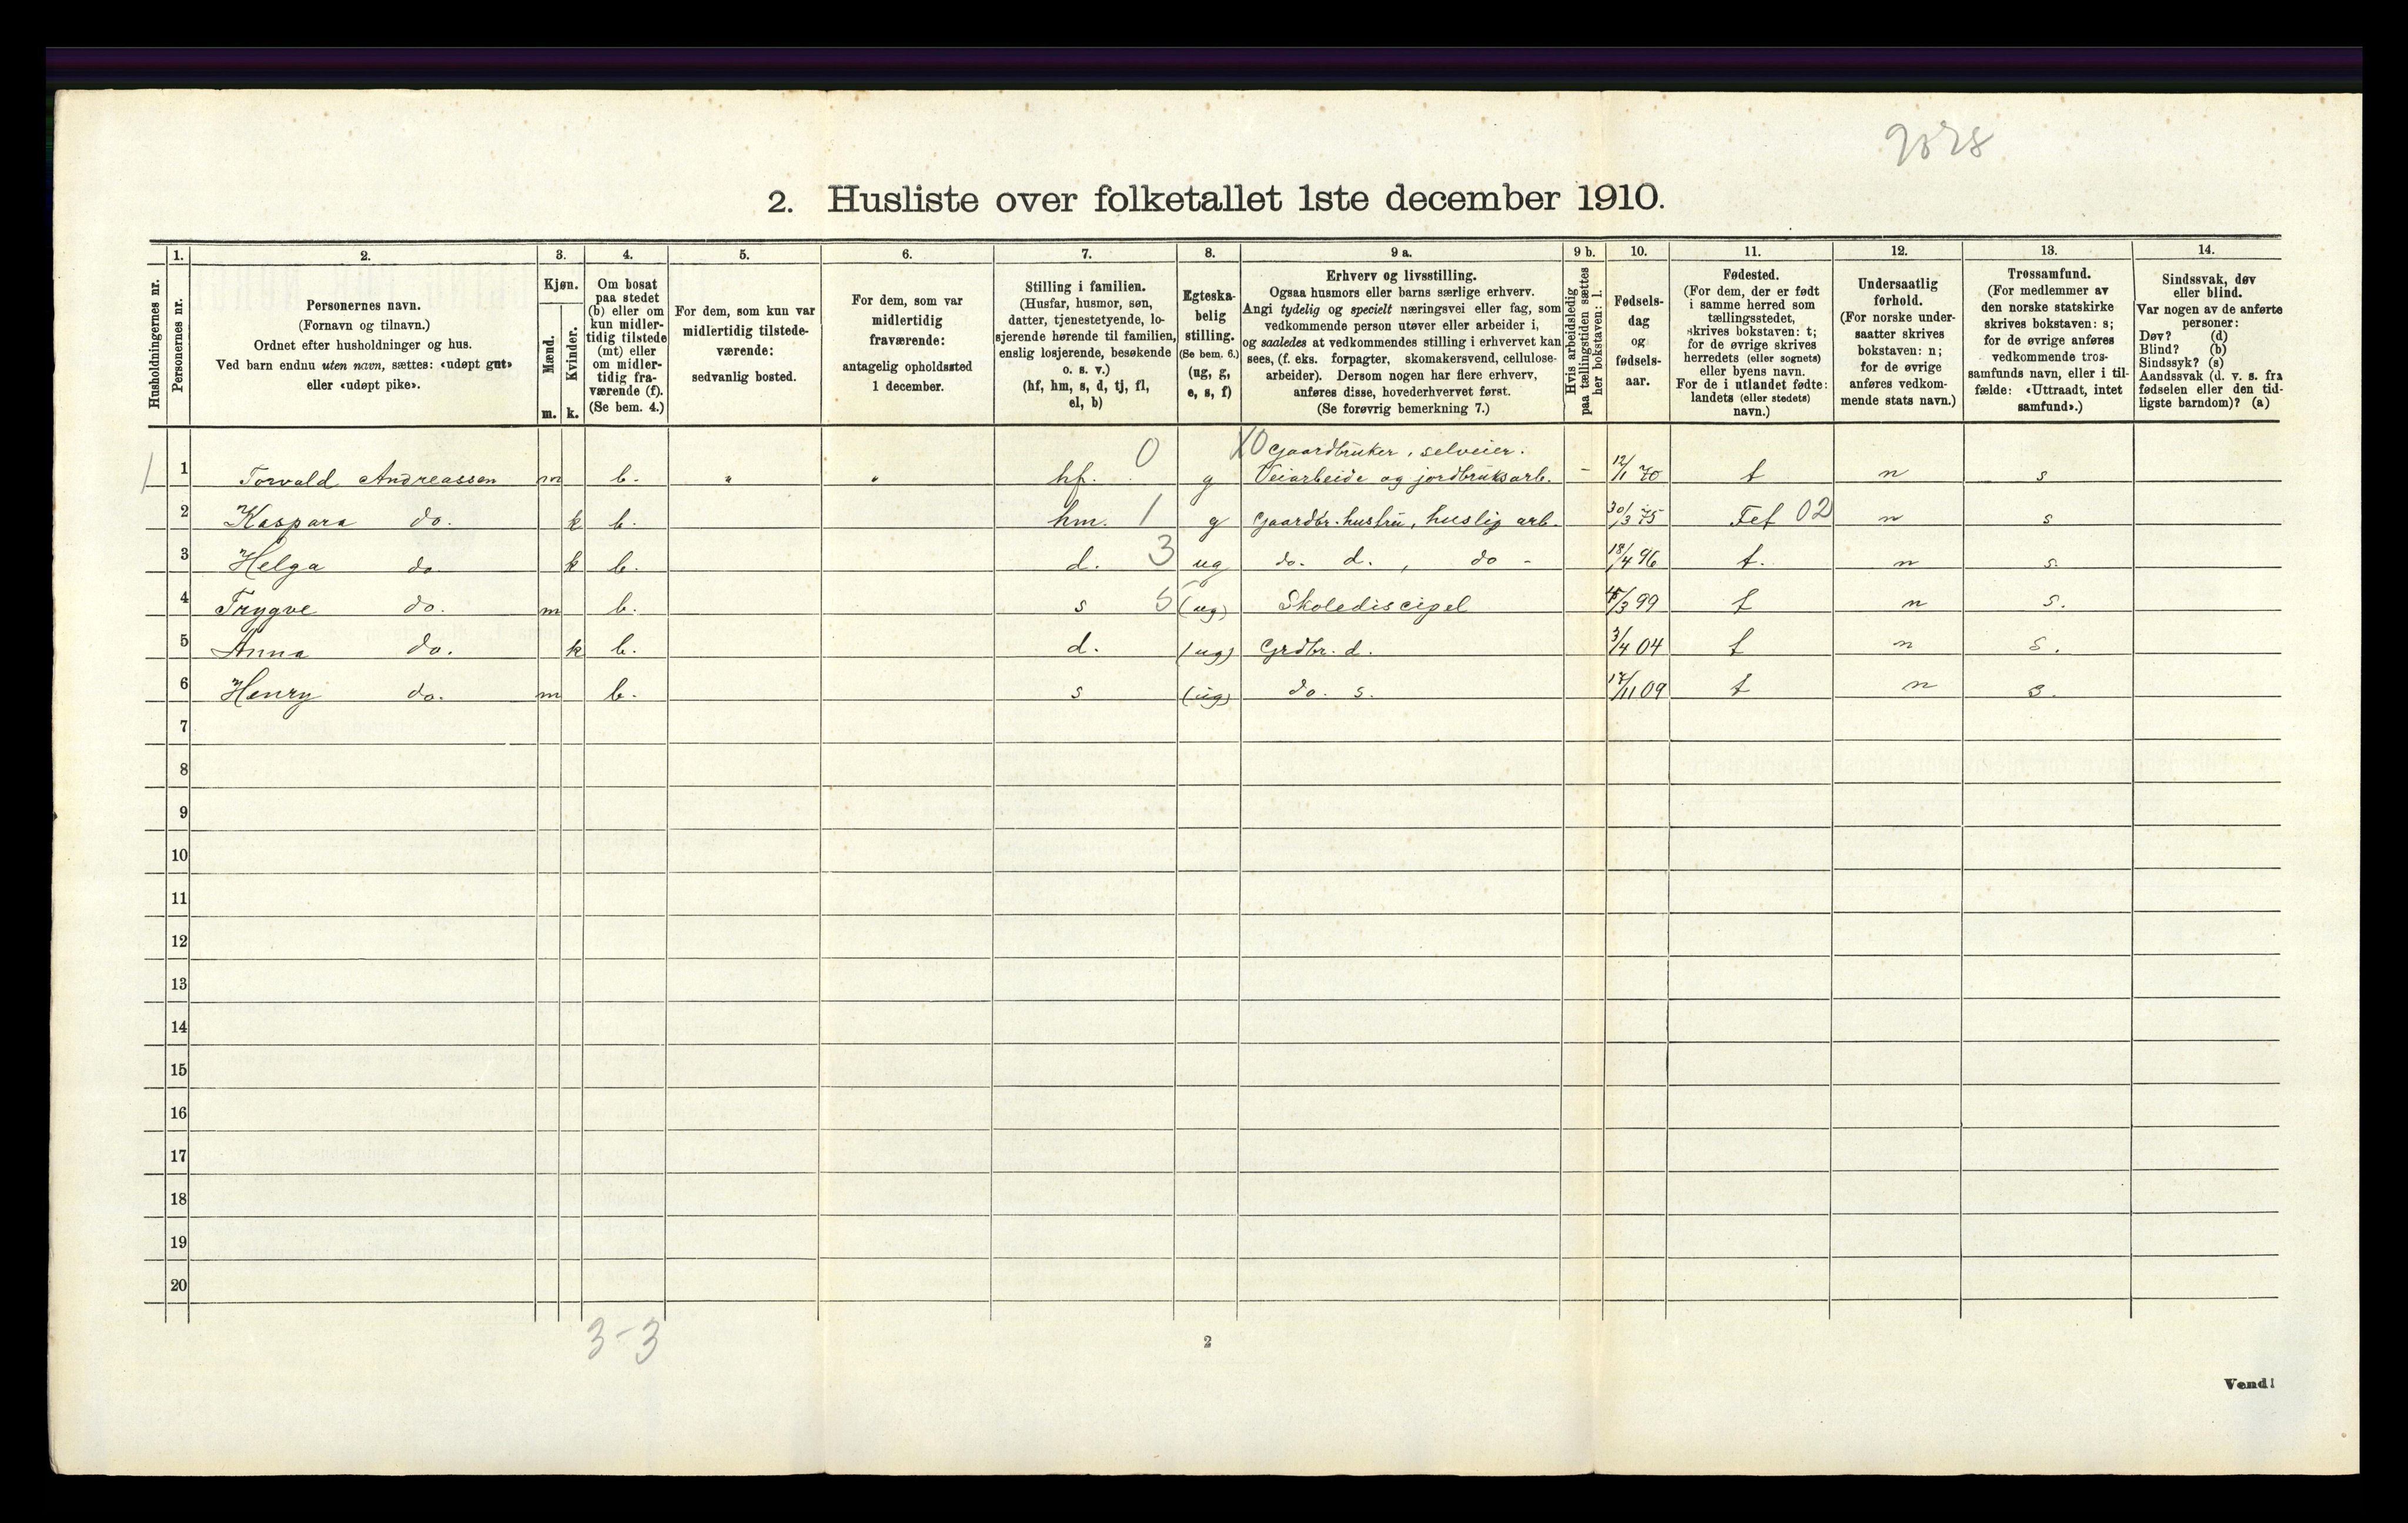 2028
2. Husliste over folketallet 1ste december 1910.
Husholdningernes nr.
1.
Personernes nr.
2.
Personernes navn.
(Fornavn og tilnavn.)
Ordnet efter husholdninger og hus.
Ved barn endnu uten navn, sættes: «udøpt gut»
eller «udøpt pike».
3.
Kjøn.
Mænd.
m.
Kvinder.
k.
4.
Om bosat
paa stedet
(b) eller om
kun midler-
tidig tilstede
(mt) eller
om midler-
tidig fra-
værende (f).
(Se bem. 4.)
5.
For dem, som kun var
midlertidig tilstede-
værende:
sedvanlig bosted.
6.
For dem, som var
midlertidig
fraværende:
antagelig opholdssted
1 december.
7.
Stilling i familien.
(Husfar, husmor, søn,
datter, tjenestetyende, lo-
sjerende hørende til familien,
enslig losjerende, besøkende
o. s. v.)
(hf, hm, s, d, tj, fl,
el, b)
8.
Egteska-
belig
stilling.
(Se bem. 6.)
(ug, g,
e, s, f)
9 a.
Erhverv og livsstilling.
Ogsaa husmors eller barns særlige erhverv.
Angi tydelig og specielt næringsvei eller fag, som
vedkommende person utøver eller arbeider i,
og saaledes at vedkommendes stilling i erhvervet kan
sees, (f. eks. forpagter, skomakersvend, cellulose-
arbeider). Dersom nogen har flere erhverv,
anføres disse, hovederhvervet først.
(Se forøvrig bemerkning 7.)
9 b.
Hvis arbeidsledig
paa tællingstiden sættes
her bokstaven: l.
10.
Fødsels-
dag
og
fødsels-
aar.
11.
Fødested.
(For dem, der er født
i samme herred som
tællingsstedet,
skrives bokstaven: t;
for de øvrige skrives
herredets (eller sognets)
eller byens navn.
For de i utlandet fødte:
landets (eller stedets)
navn.)
12.
Undersaatlig
forhold.
(For norske under-
saatter skrives
bokstaven: n;
for de øvrige
anføres vedkom-
mende stats navn.)
13.
Trossamfund.
(For medlemmer av
den norske statskirke
skrives bokstaven: s;
for de øvrige anføres
vedkommende tros-
samfunds navn, eller i til-
fælde: «Uttraadt, intet
samfund».)
14.
Sindssvak, døv
eller blind.
Var nogen av de anførte
personer:
Døv? (d)
Blind? (b)
Sindssyk? (s)
Aandssvak (d. v. s. fra
fødselen eller den tid-
ligste barndom)? (a)
0 X0 Gaardbruker, selveier.
1 1 Torvald Andreassen m b. " " hf. g Veiarbeide og jordbruksarb. - 12/1 70 t n s
2 Kaspara do. k b. hm. 1 g Gaardbr. hustru, huslig arb. 30/3 75 Fet 02 n s
3 Helga do k b. d. 3 ug do. d. , do - 18/4 96 t. n s.
4 Trygve do. m b. s 5 (ug) Skolediscipel /3 99 t n s.
5 Anna do. k b. d. (ug) Grdbr. d. 3/4 04 t n s.
6 Henry do. m b. s (ug) do. s. 17/11 09 t n s.
7
8
9
10
11
12
13
14
15
16
17
18
19
20
3-3
2
Vend!